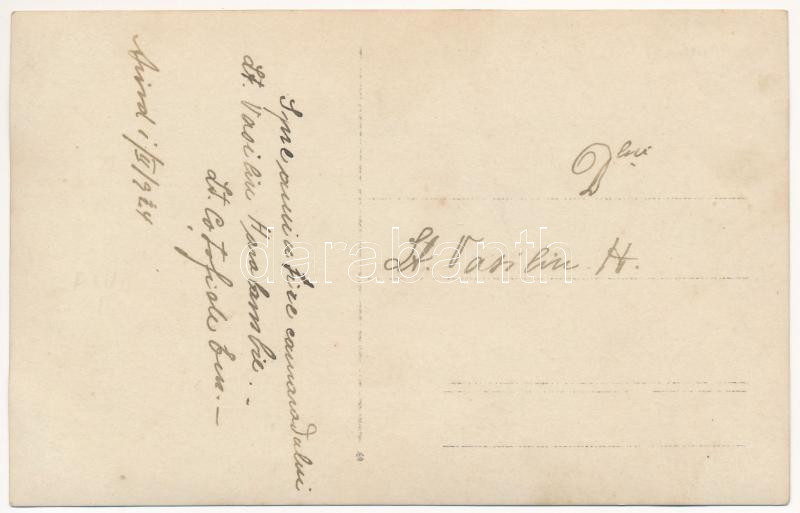 Spre amintire camaradului
Lt. Vasiliu Haralambie. -
Lt. Cotofide Em. -
Aiud 1/II/924
Dlui
Lt. Vasiliu H.
darabanth